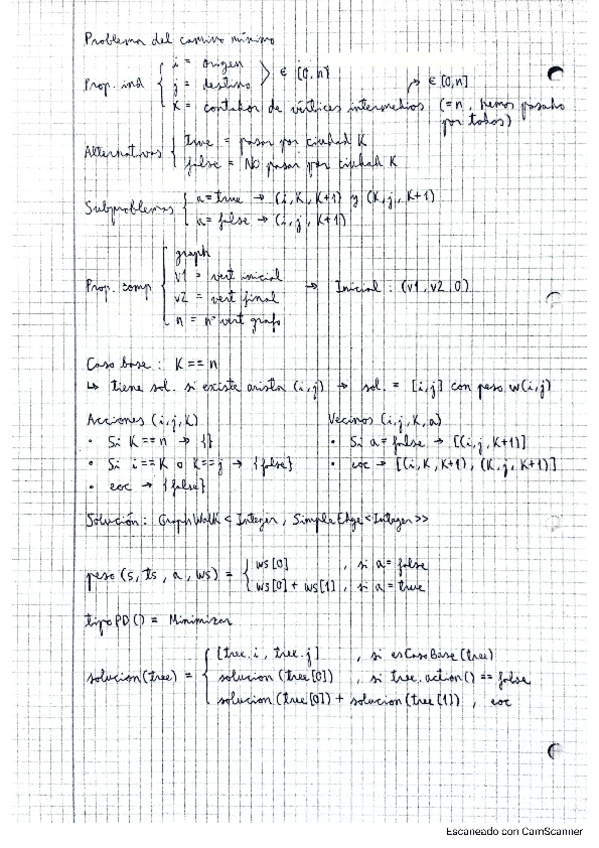 Problema del camino mínimo
Prop. ind { i = origen
j = destino } ∈ [0,n)
K = contador de vértices intermedios → ∈ [0,n] (=n, hemos pasado por todos)
Alternativas { true = pasar por ciudad K
false = NO pasar por ciudad K
Subproblemas { a=true → (i,K,K+1) y (K,j,K+1)
a=false → (i,j,K+1)
Prop. comp { graph
v1 = vert inicial
v2 = vert final
n = nº vert grafo
→ Inicial: (v1,v2,0)
Caso base: K==n
↳ tiene sol. si existe arista (i,j) → sol. = [i,j] con peso w(i,j)
Acciones (i,j,K)
• Si K==n → {}
• Si i==K o K==j → {false}
• eoc → {false}
Vecinos (i,j,K,a)
• Si a=false → [(i,j,K+1)]
• eoc → [(i,K,K+1), (K,j,K+1)]
Solución: GraphWalk<Integer, SimpleEdge<Integer>>
peso (s, ts, a, ws) = { ws[0] , si a=false
ws[0] + ws[1] , si a=true
tipoPD() = Minimizar
solucion(tree) = { [tree.i, tree.j] , si esCasoBase(tree)
solucion (tree[0]) , si tree.action() == false
solucion (tree[0]) + solucion (tree[1]) , eoc
Escaneado con CamScanner